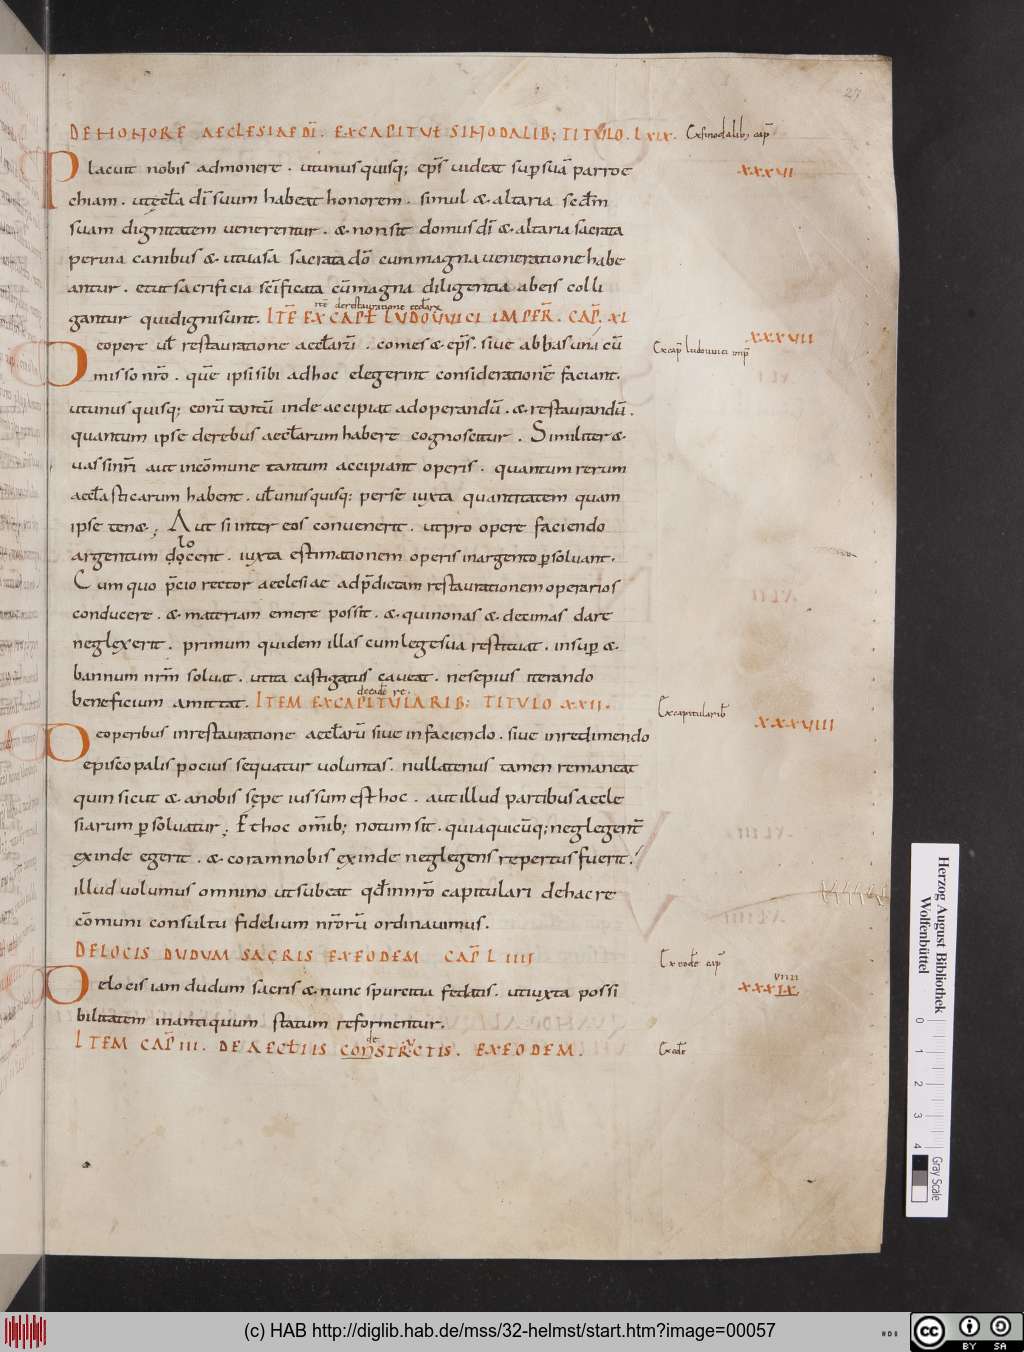 27
DE HONORE AECLESIAE DĪ. EX CAPITUŁ SINODALIB; TITULO. LXIX. Ex sinodalib; cap̄
Placuit nobis admonere. ut unus quisq; ep̄s videat sup suā parroc
XXXVI
chiam. ut eccƚa dī suum habeat honorem. simul & altaria secdm̄
suam dignitatem venerentur. & non sit domus dī & altaria sacrata
pervia canibus & ut vasa sacrata dō cum magna veneratione habe
antur. et ut sacrificia sc̄ificata cū magna diligentia ab eis colli
de restauratione eccƚarū
gantur qui digni sunt. ITĒ EX CAPT̄ LUDOUUICI IMPER̄. CAP̄. XI
XXXVII
De opere uƚ restauratione aeccƚarū. comes & ep̄s. sive abbas una cū
Ex cap̄ ludouuici imp̄
misso nr̄o. quē ipsi sibi ad hoc elegerint considerationē faciant.
ut unus quisq; eorū tantū inde accipiat ad operandū. & restaurandū.
quantum ipse de rebus aeccƚarum habere cognoscitur. Similiter &
vassi nr̄i aut in cōmune tantum accipiant operis. quantum rerum
aeccƚasticarum habent. uƚ unus quisq; per se iuxta quantitatem quam
ipse ten&; Aut si inter eos convenerit. ut pro opere faciendo
lo
argentum docent. iuxta estimationem operis in argento psolvant.
Cum quo p̄cio rector aecclesiae ad p̄dictam restaurationem operarios
conducere. & materiam emere possit. & qui nonas & decimas dare
neglexerit. primum quidem illas cum lege sua restituat. insup &
bannum nrm̄ solvat. ut ita castigatus caveat. ne sepius iterando
de eadē re.
beneficium amittat. ITEM EX CAPITULARIB; TITULO XXII.
Ex capitularib̄
XXXVIII
De operibus in restauratione aeccƚarū sive in faciendo. sive in redimendo
episcopalis pocius sequatur voluntas. nullatenus tamen remaneat
quin sicut & a nobis sępe iussum est hoc. aut illud partibus aeccle
siarum psolvatur; Et hoc om̄ib; notum sit. quia quicūq; neglegent̄
exinde egerit. & coram nobis exinde neglegens repertus fuerit.
illud volumus omnino ut subeat qđ in nr̄o capitulari de hac re
cōmuni consultu fidelium nr̄orū ordinavimus.
DE LOCIS DUDUM SACRIS EX EODEM CAP̄ LIIII
Ex eodē cap̄
VIIII
De locis iam dudum sacris & nunc spurcitia fedatis. ut iuxta possi
XXXIX
bilitatem in antiquum statum reformentur.
de
ITEM CAP̄ III. DE AECƚIIS CONSTRUCTIS. EX EODEM.
Ex eodē
Herzog August Bibliothek
Wolfenbüttel
0 1 2 3 4
Gray Scale
(c) HAB http://diglib.hab.de/mss/32-helmst/start.htm?image=00057
cc BY SA